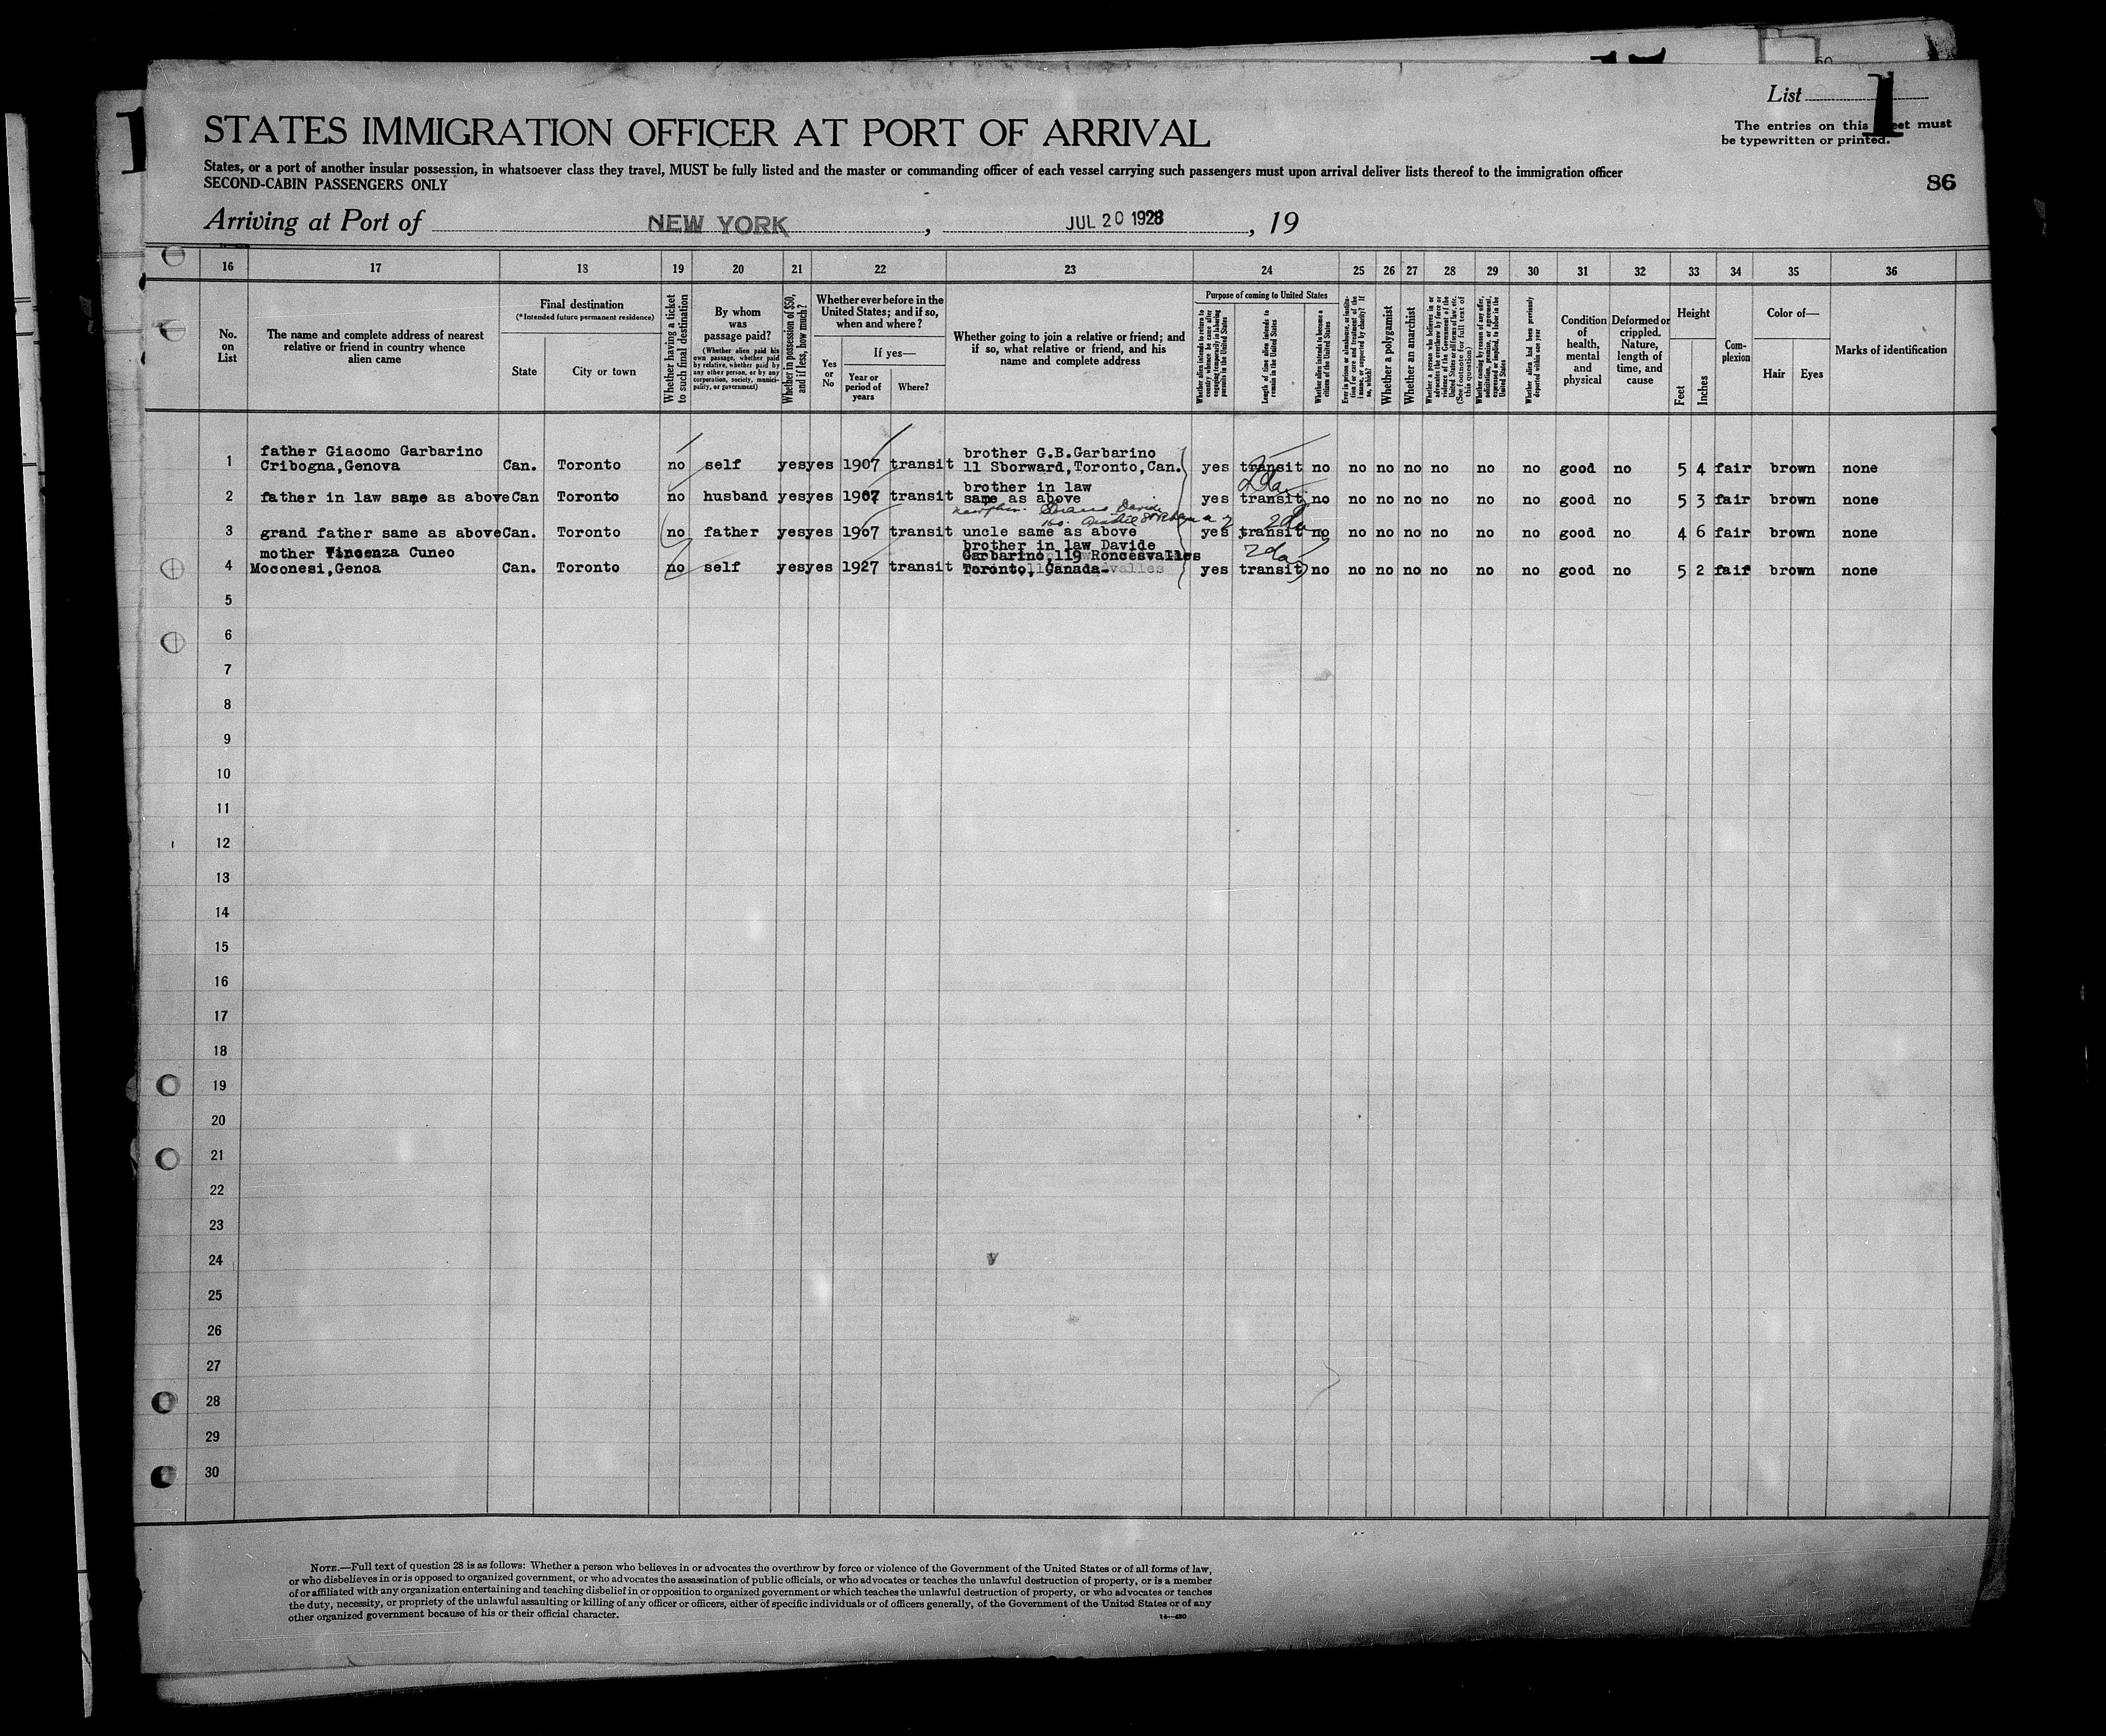 List 1
The entries on this sheet must
be typewritten or printed.
86
STATES IMMIGRATION OFFICER AT PORT OF ARRIVAL
States, or a port of another insular possession, in whatsoever class they travel, MUST be fully listed and the master or commanding officer of each vessel carrying such passengers must upon arrival deliver lists thereof to the immigration officer
SECOND-CABIN PASSENGERS ONLY
Arriving at Port of NEW YORK, JUL 20 1928, 19
16 17 18 19 20 21 22 23 24 25 26 27 28 29 30 31 32 33 34 35 36
No. on List
The name and complete address of nearest relative or friend in country whence alien came
Final destination
(*Intended future permanent residence)
State
City or town
Whether having a ticket to such final destination
By whom was passage paid?
(Whether alien paid his own passage, whether paid by relative, whether paid by any other person, or by any corporation, society, municipality, or government)
Whether in possession of $50, and if less, how much?
Whether ever before in the United States; and if so, when and where?
Yes or No
If yes—
Year or period of years
Where?
Whether going to join a relative or friend; and if so, what relative or friend, and his name and complete address
Purpose of coming to United States
Whether alien intends to return to country whence he came after engaging temporarily in laboring pursuits in the United States
Length of time alien intends to remain in the United States
Whether alien intends to become a citizen of the United States
Ever in prison or almshouse, or institution for care and treatment of the insane, or supported by charity? If so, which?
Whether a polygamist
Whether an anarchist
Whether a person who believes in or advocates the overthrow by force or violence of the Government of the United States or all forms of law, etc. (See footnote for full text of this question)
Whether coming by reason of any offer, solicitation, promise, or agreement, expressed or implied, to labor in the United States
Whether alien had been previously deported within one year
Condition of health, mental and physical
Deformed or crippled. Nature, length of time, and cause
Height
Feet
Inches
Complexion
Color of—
Hair
Eyes
Marks of identification
father Giacomo Garbarino brother G.B.Garbarino
1 Cribogna,Genova Can. Toronto no self yes yes 1907 transit 11 Sborward,Toronto,Can. yes transit no no no no no no no good no 5 4 fair brown none
brother in law 2da
2 father in law same as above Can Toronto no husband yes yes 1907 transit same as above yes transit no no no no no no no good no 5 3 fair brown none
Davide
2da
3 grand father same as above Can. Toronto no father yes yes 1907 transit uncle same as above yes transit no no no no no no no good no 4 6 fair brown none
mother Vincenza Cuneo brother in law Davide
Garbarino 119 Roncesvalles 2da
4 Moconesi,Genoa Can. Toronto no self yes yes 1927 transit Toronto, Canada- yes transit no no no no no no no good no 5 2 fair brown none
5
6
7
8
9
10
11
12
13
14
15
16
17
18
19
20
21
22
23
24
25
26
27
28
29
30
NOTE.—Full text of question 28 is as follows: Whether a person who believes in or advocates the overthrow by force or violence of the Government of the United States or of all forms of law,
or who disbelieves in or is opposed to organized government, or who advocates the assassination of public officials, or who advocates or teaches the unlawful destruction of property, or is a member
of or affiliated with any organization entertaining and teaching disbelief in or opposition to organized government or which teaches the unlawful destruction of property, or who advocates or teaches
the duty, necessity, or propriety of the unlawful assaulting or killing of any officer or officers, either of specific individuals or of officers generally, of the Government of the United States or of any
other organized government because of his or their official character.
14—430